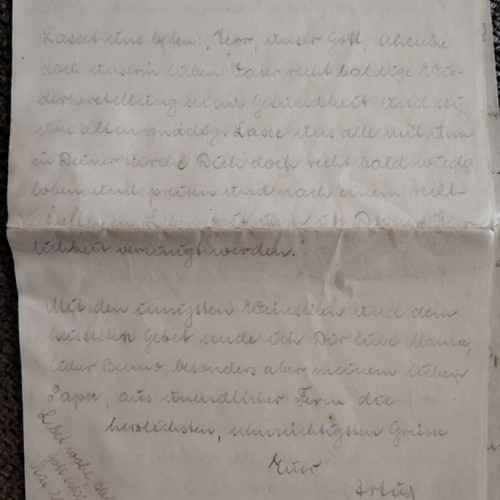 Lasset uns beten: "Herr, unser Gott, schenke
doch unserm lieben Vater recht baldige Wie-
derherstellung seiner Gesundheit und sei
uns allen gnädig. Lasse uns alle mit ihm
in Deiner Kirche Dich doch recht bald wieder
loben und preisen und nach einem recht-
schaffenen Leben in Deiner Herr-
lichkeit vereinigt werden."
Mit den innigsten Wünschen und dem
heissesten Gebet sende ich Dir liebe Mama,
lieber Benno, besonders aber meinem lieben
Papa, aus unendlicher Ferne die
herzlichsten, sehnsüchtigsten Grüsse
Euer
Artur
Lebet wohl,